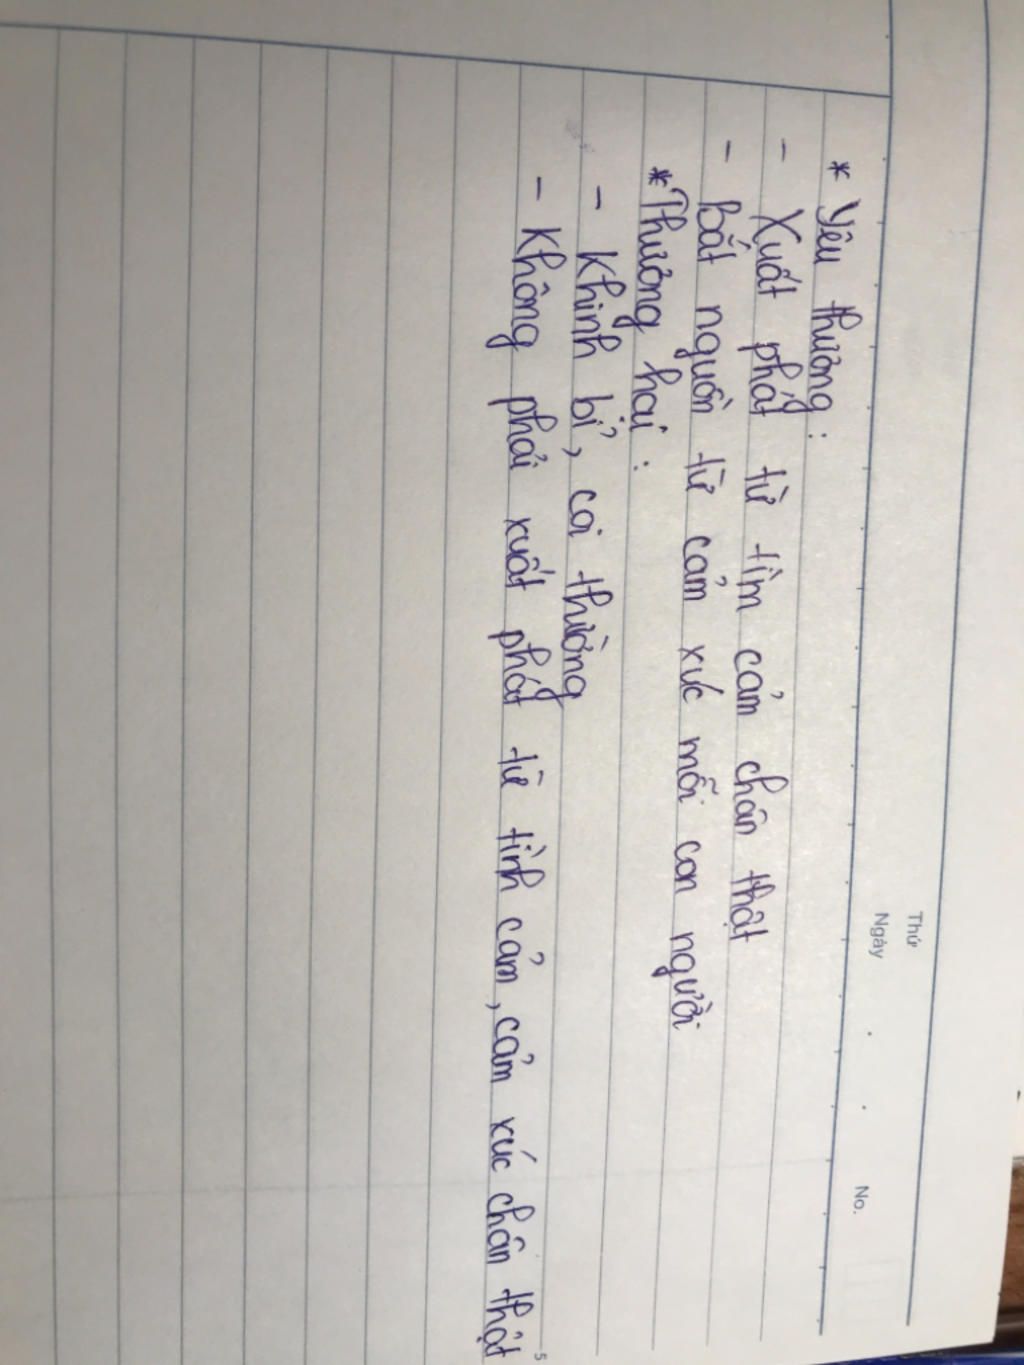 Thứ
Ngày . . No.
* Yêu thương :
- Xuất phát từ tìm cảm chân thật
- Bắt nguồn từ cảm xúc mỗi con người
* Thương hại :
- Khinh bỉ, coi thường
- Không phải xuất phát từ tình cảm, cảm xúc chân thật
5